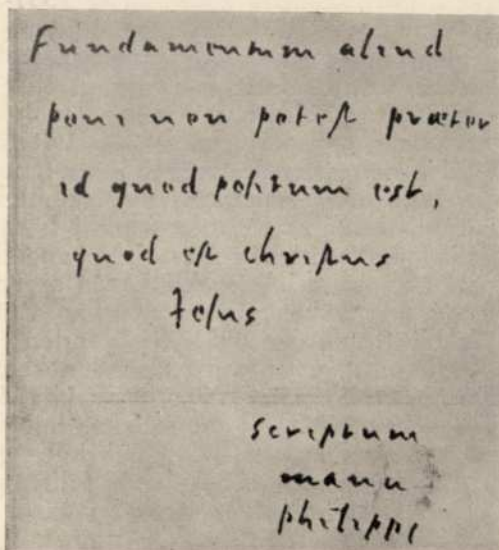 Fundamentum aliud
poni non potest praeter
id quod positum est,
quod est christus
Jesus
scriptum
manu
philippi